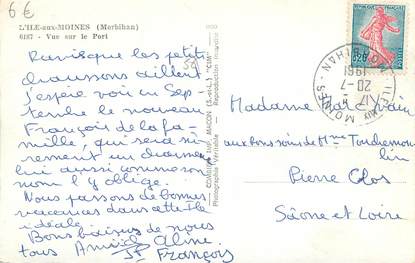 6€
L'ILE-aux-MOINES (Morbihan)
6187 - Vue sur le Port
5€
Ravis que les petits
chaussons aillent
j'espère voir en Sep
tembre le nouveau
François de la fa-
mille, qui sera sû-
rement un charme
lui aussi comme son
nom l'y oblige.
Nous passons de bonnes
vacances dans cette île
idéale.
Bons baisers de nous
tous
Aline
François
COMBIER IMP. MACON (S.-et-L.) "CIM"
Photographie Véritable - Reproduction Interdite
0,20
ILE AUX MOINES
MORBIHAN
20-7
1961
Madame
aux bons soins de Mme
Pierre Clos
Saône et Loire